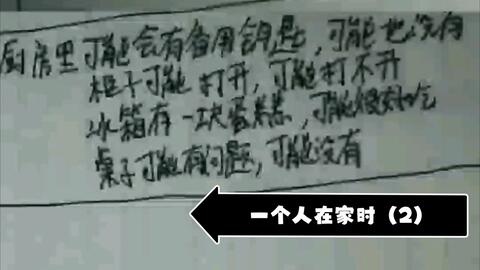 厨房里可能会有备用钥匙,可能也没有
柜子可能打开,可能打不开
冰箱有一块蛋糕,可能很好吃
桌子可能有问题,可能没有
一个人在家时(2)